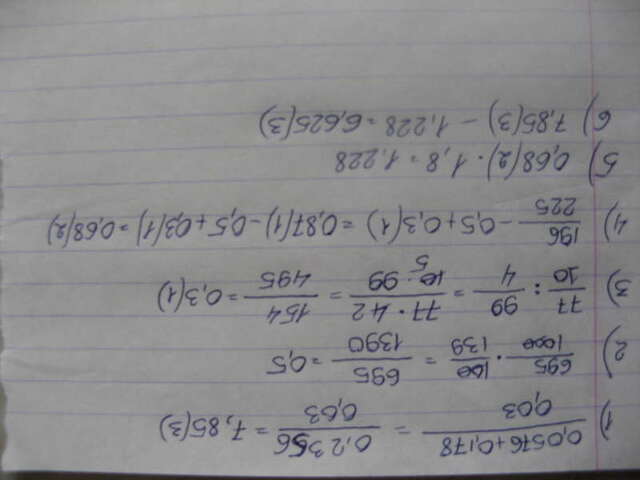 1) (0,0576+0,178)/0,03 = 0,2356/0,03 = 7,85(3)
2) 695/1000 · 100/139 = 695/1390 = 0,5
3) 77/10 : 99/4 = 77·42/10·99 5 = 154/495 = 0,3(1)
4) 196/225 - 0,5+0,3(1) = 0,87(1)-0,5+0,3(1)=0,68(2)
5) 0,68(2)·1,8=1,228
6) 7,85(3)-1,228=6,625(3)